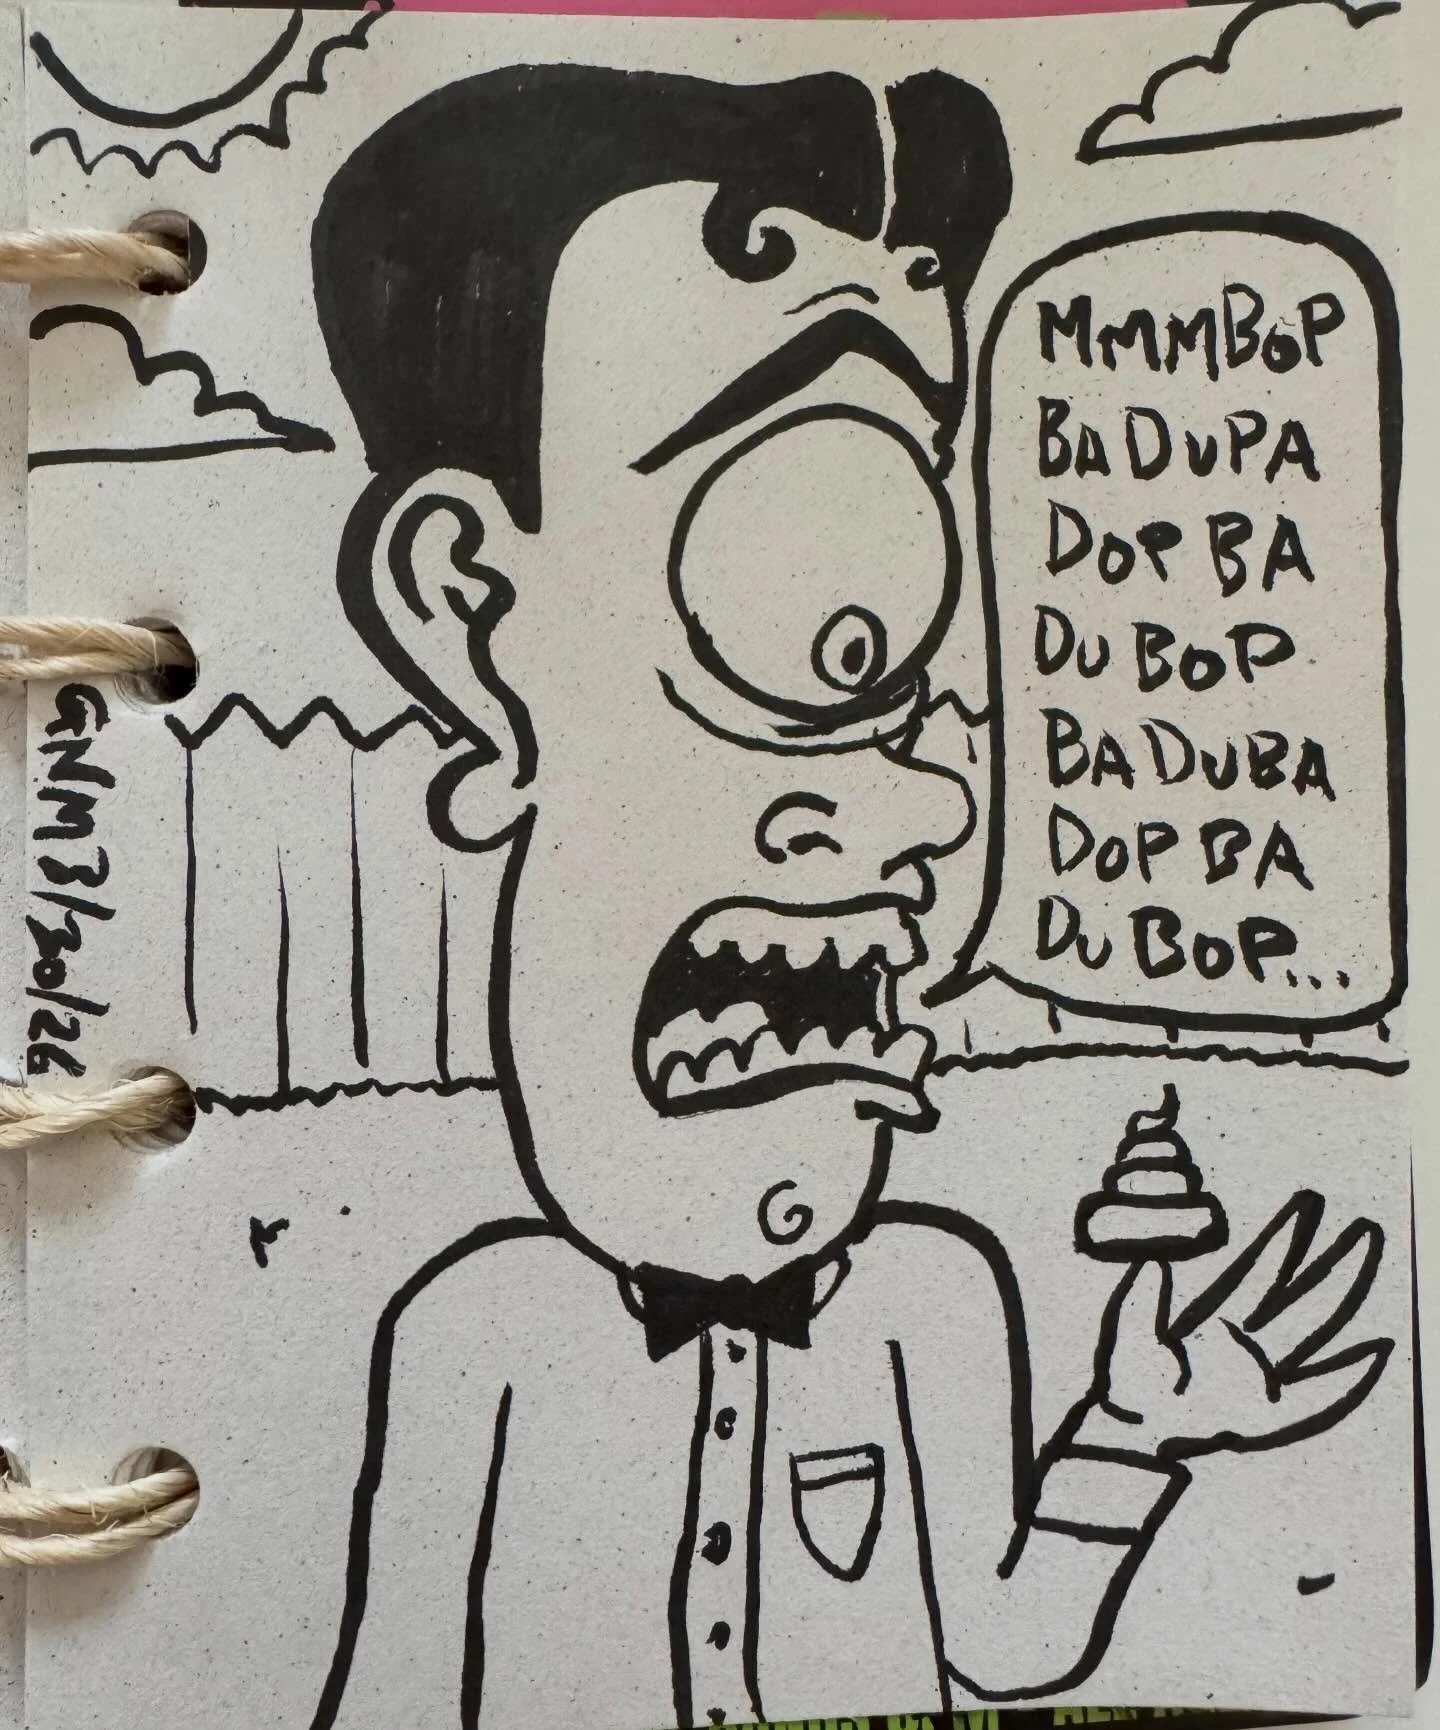 MMMBOP
BA DUPA
DOP BA
DU BOP
BA DUBA
DOP BA
DU BOP...
GNM 3/30/26